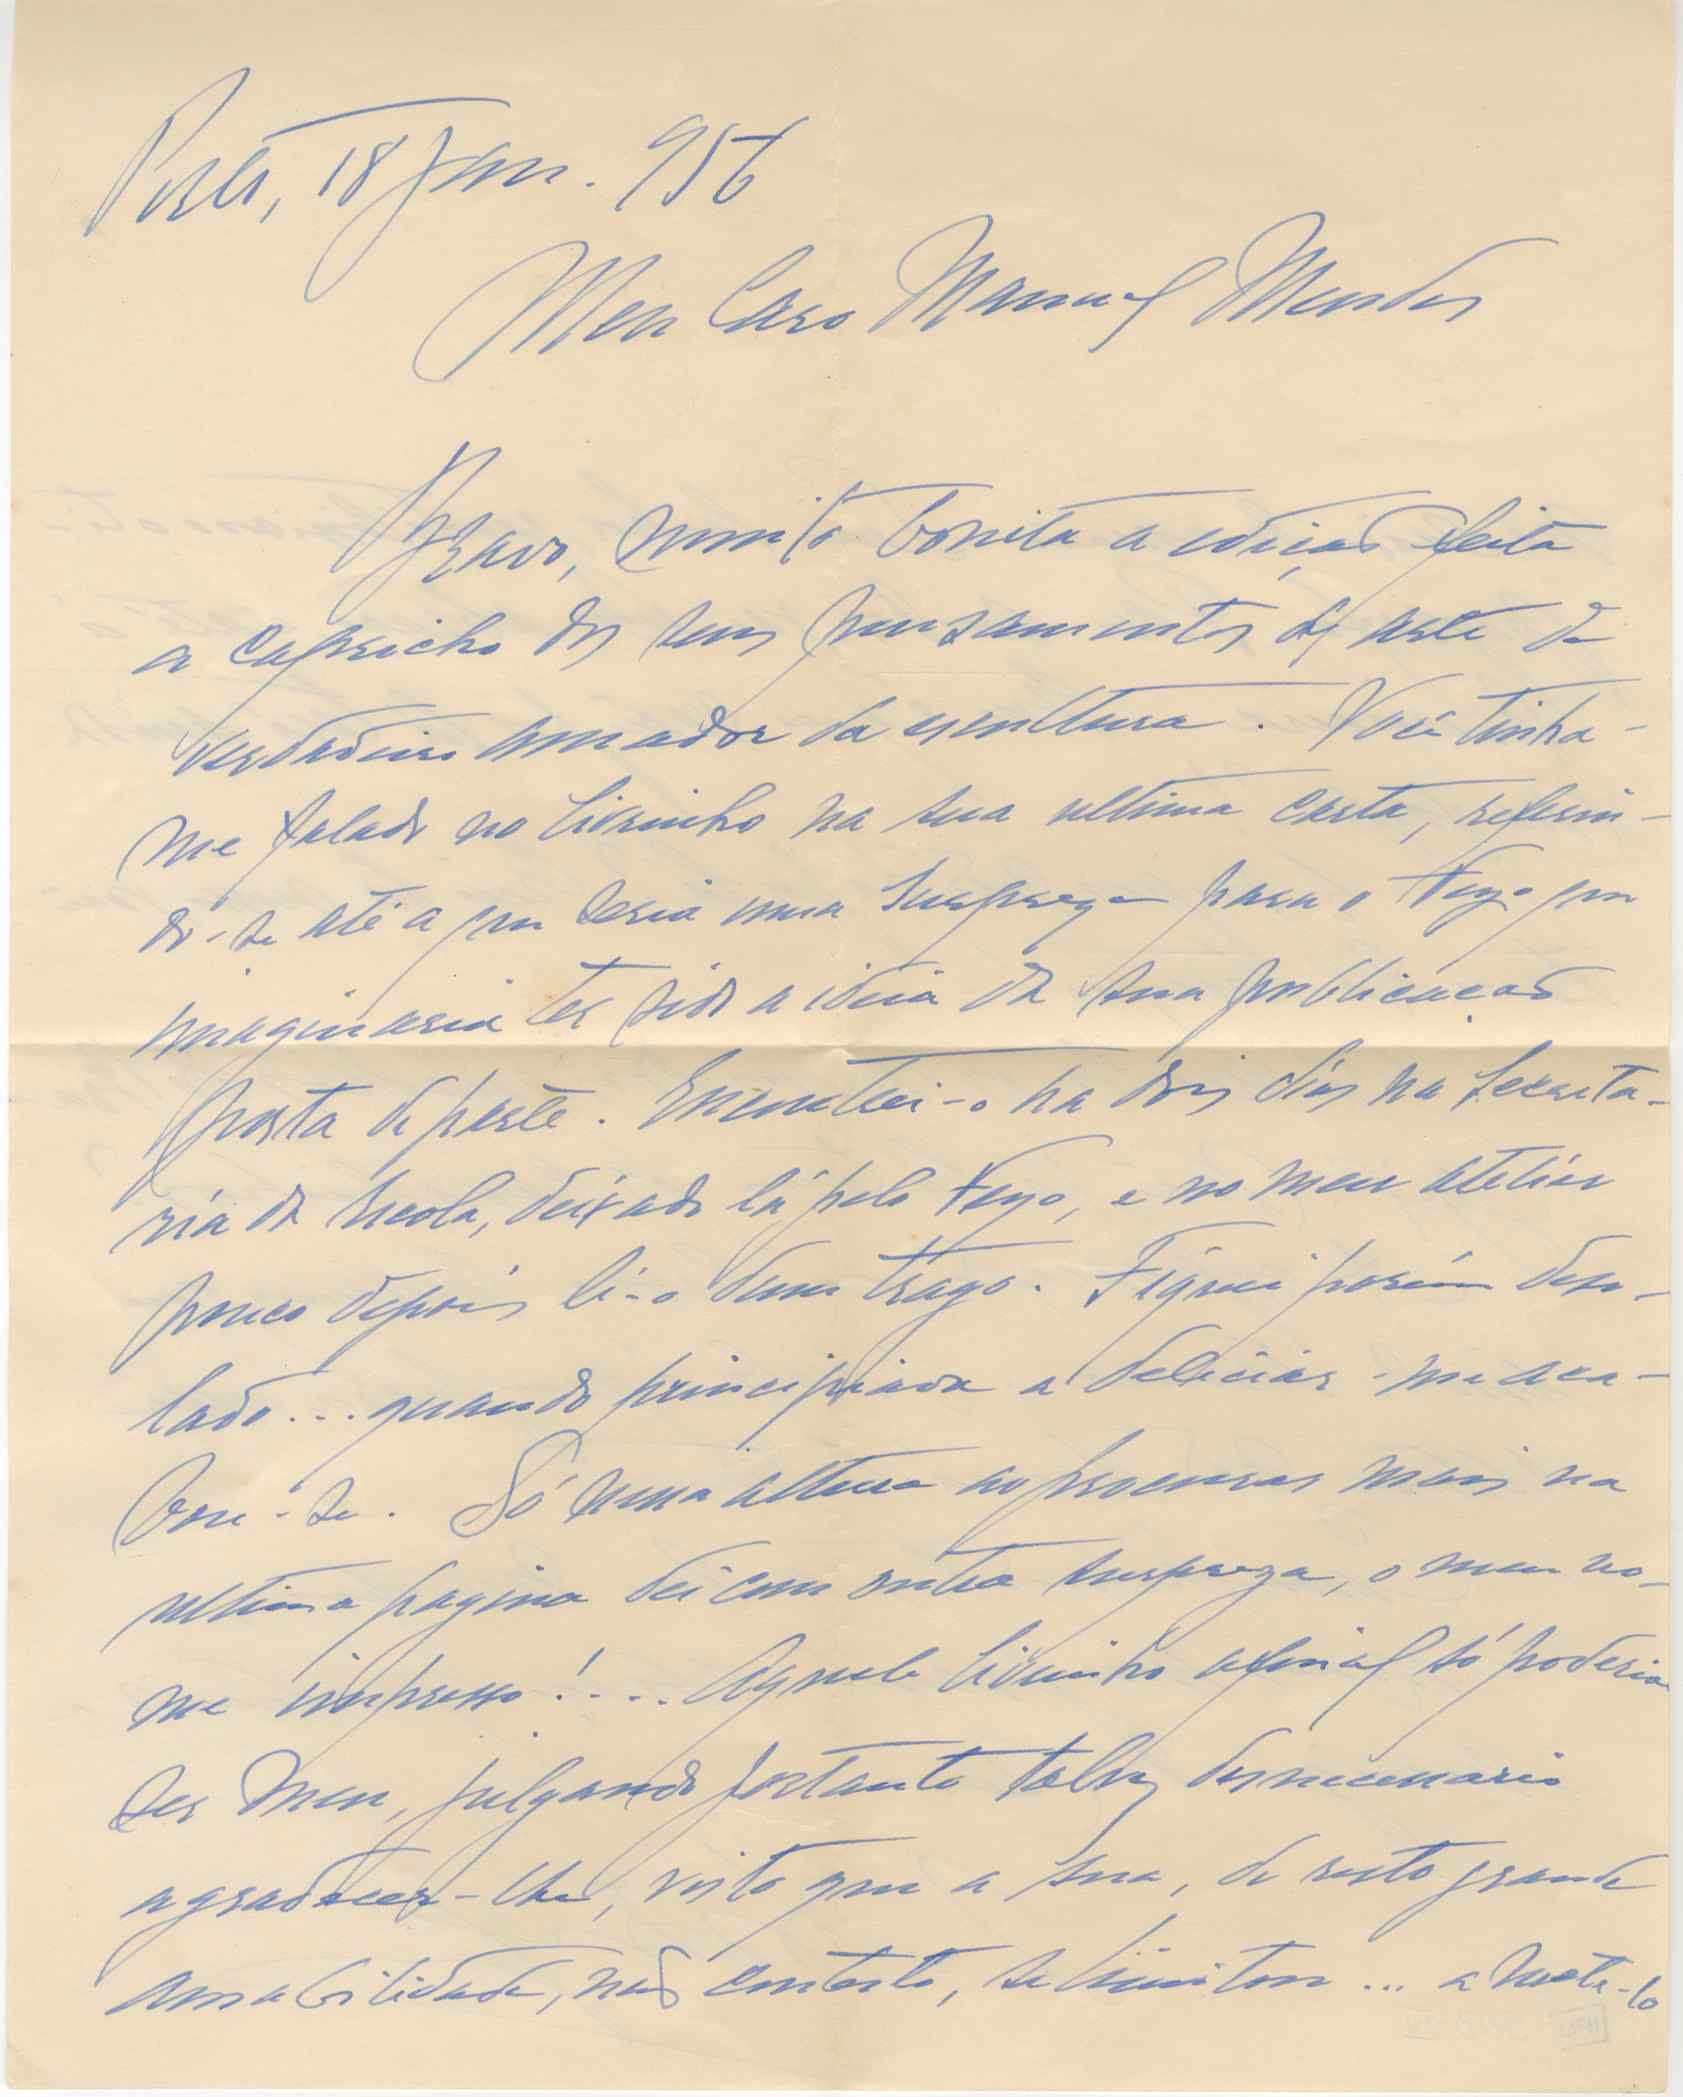 Porto, 18 Jan. 956
Meu Caro Manuel Mendes
Bravo, muito bonita a edição feita
a capricho dos seus pensamentos de arte de
verdadeiro amador da escultura. Você tinha-
me falado no livrinho na sua ultima carta, referin-
do-se até a que seria uma surpreza para o Feyo que
imaginaria ter sido a ideia da sua publicação
posta de parte. Encontrei-o ha dois dias na Secreta-
ria da Escola, deixado lá pelo Feyo, e no meu atelier
pouco depois li-o dum trago. Fiquei porém deso-
lado... quando principiava a deliciar-me aca-
bou-se. Só numa altura ao procurar mais na
ultima pagina dei com outra surpreza, o meu no-
me impresso!.... Aquele livrinho afinal só poderia
ser meu, julgando portanto talvez desnecessario
agradecer-lhe, visto que a sua, de resto grande
amabilidade, não contesto, se limitou... a mete-lo